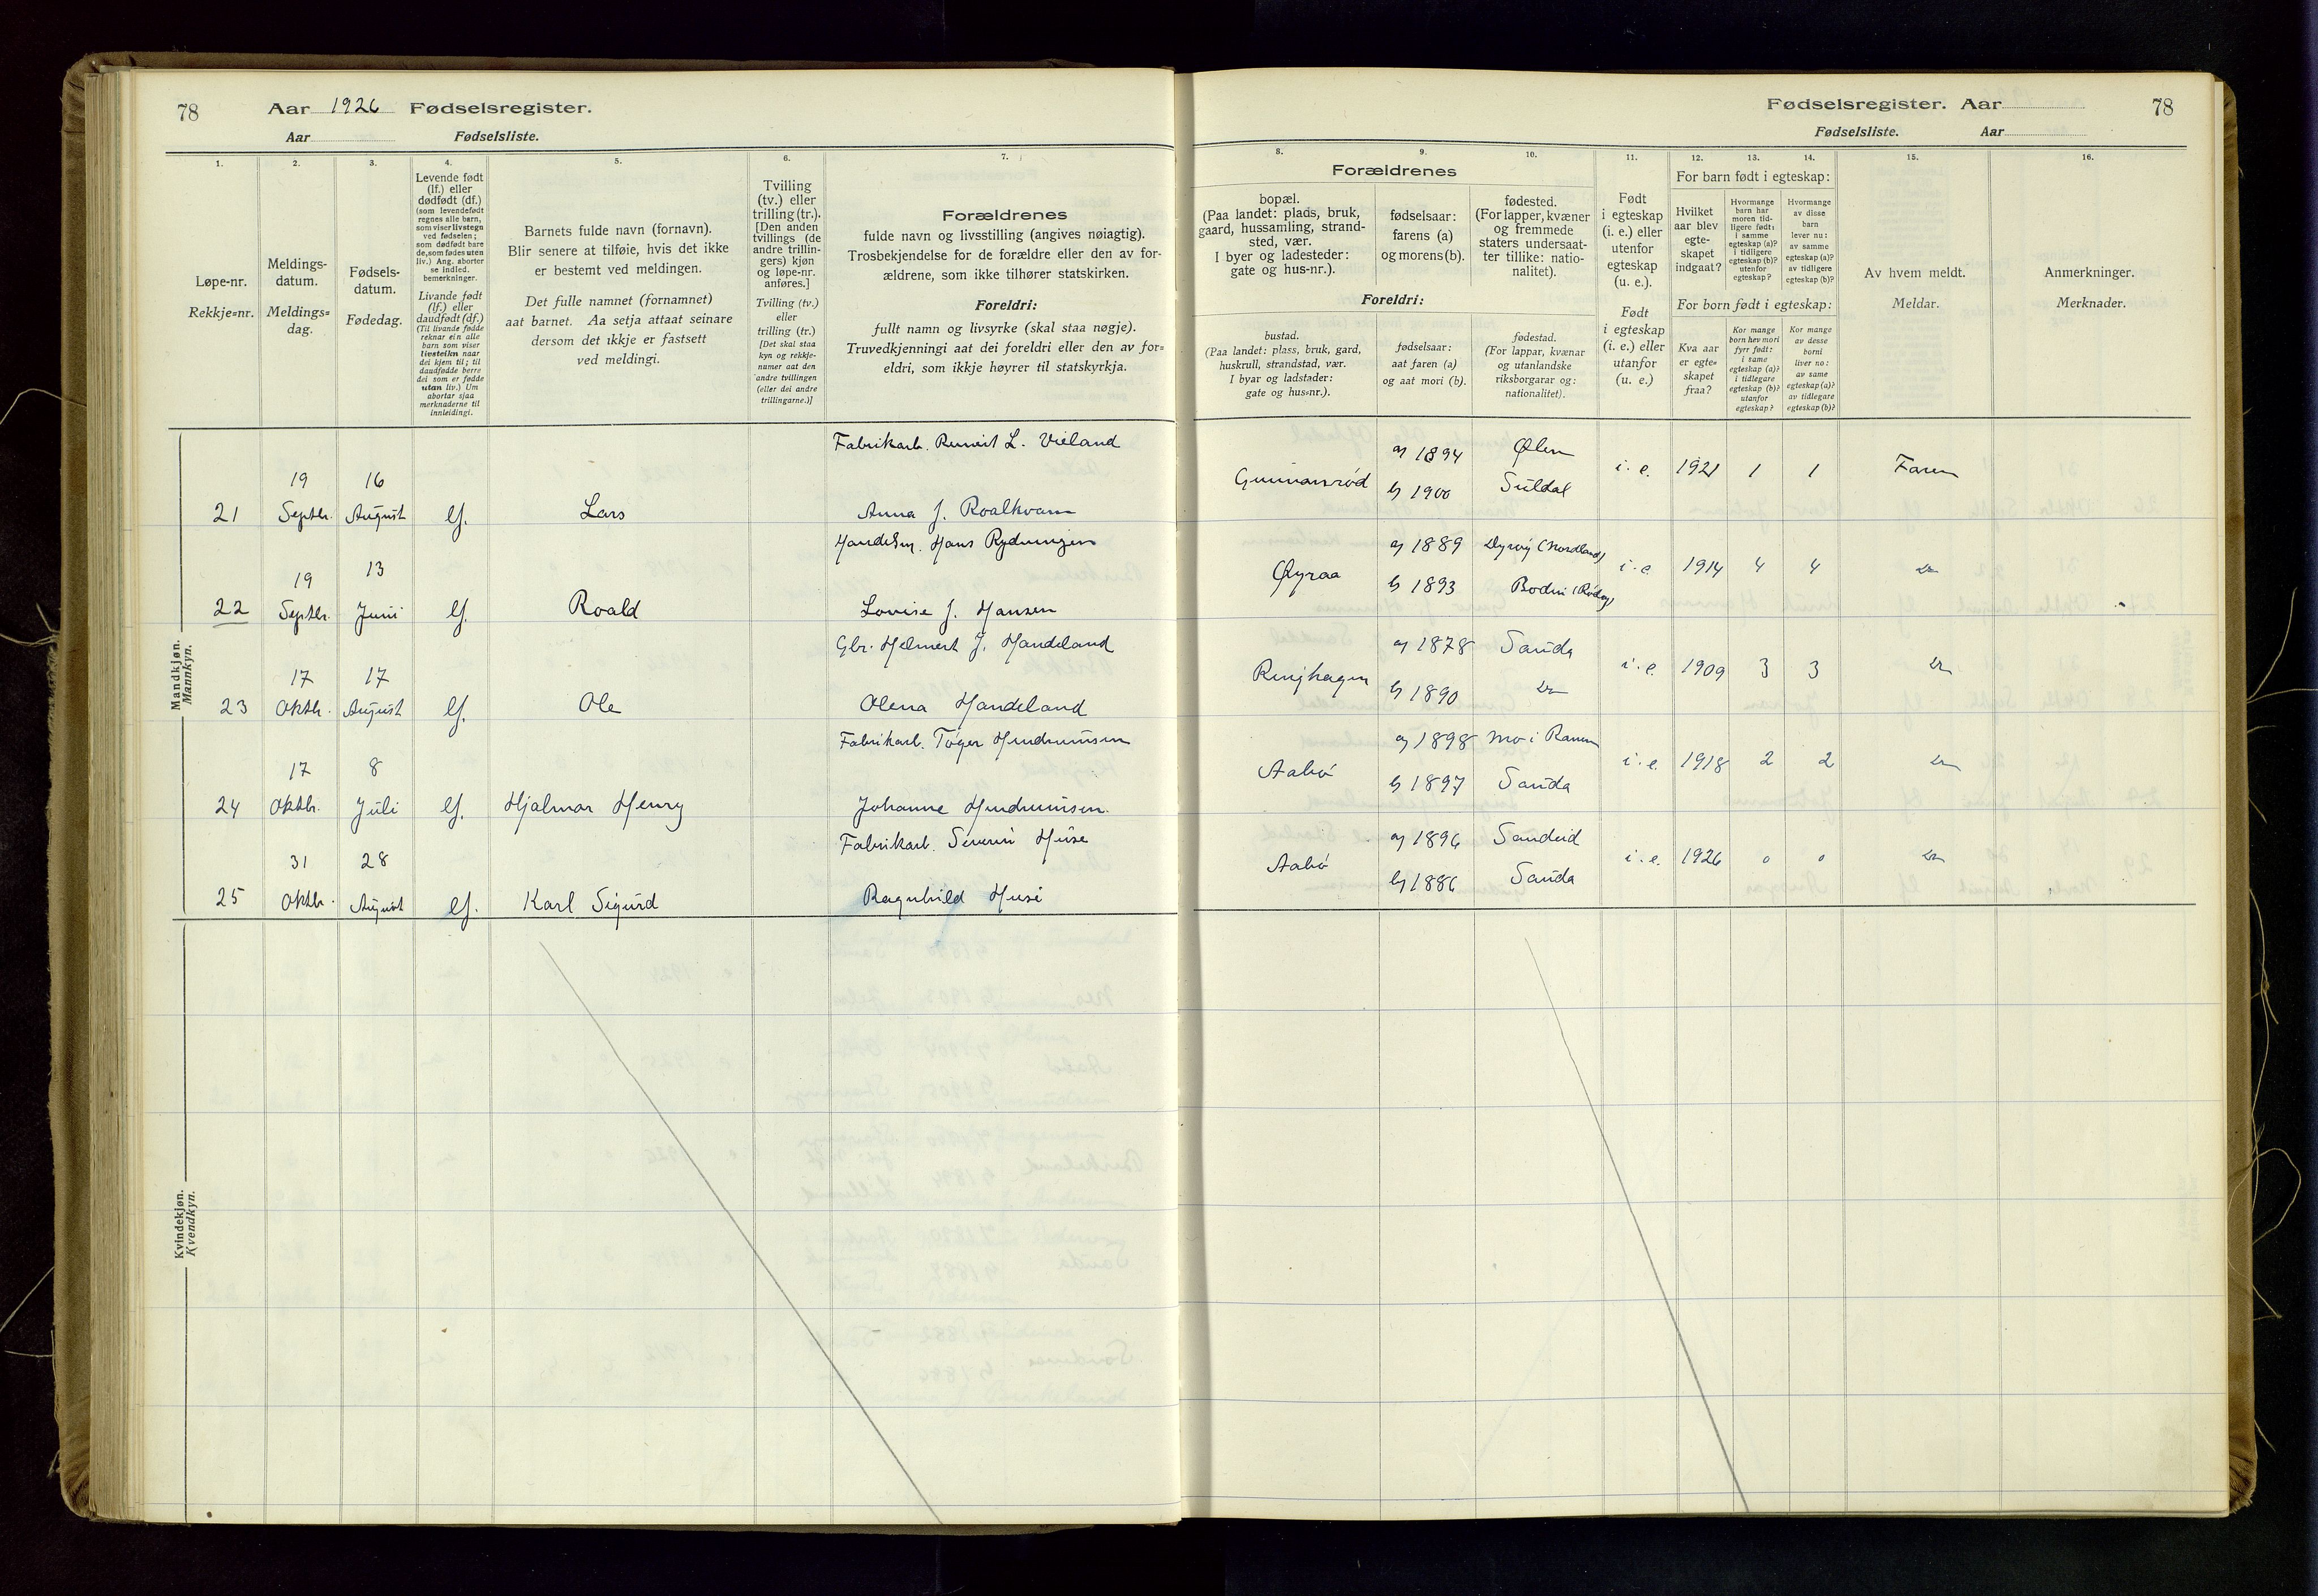 78 Aar 1926 Fødselsregister.
Aar Fødselsliste.
Fødselsregister. Aar 78
Fødselsliste. Aar
1. 2. 3. 4. 5. 6. 7.
Løpe-nr.
Rekkje=nr.
Meldings-
datum.
Meldings=
dag.
Fødsels-
datum.
Fødedag.
Levende født
(lf.) eller
dødfødt (df.)
(som levendefødt
regnes alle barn,
som viser livstegn
ved fødselen;
som dødfødt bare
de, som fødes uten
liv.) Ang. aborter
se indled.
bemerkninger.
Livande født
(lf.) eller
daudfødt (df.)
(Til livande fødde
reknar ein alle
barn som viser
livsteikn naar
dei kjem til; til
daudfødde berre
dei som er fødde
utan liv.) Um
abortar sjaa
merknaderne til
innleidingi.
Barnets fulde navn (fornavn).
Blir senere at tilføie, hvis det ikke
er bestemt ved meldingen.
Det fulle namnet (fornamnet)
aat barnet. Aa setja attaat seinare
dersom det ikkje er fastsett
ved meldingi.
Tvilling
(tv.) eller
trilling (tr.).
[Den anden
tvillings (de
andre trillin-
gers) kjøn
og løpe-nr.
anføres.]
Tvilling (tv.)
eller
trilling (tr.)
[Det skal staa
kyn og rekkje-
numer aat den
andre tvillingen
(eller dei andre
trillingarne.)]
Forældrenes
fulde navn og livsstilling (angives nøiagtig).
Trosbekjendelse for de forældre eller den av for-
ældrene, som ikke tilhører statskirken.
Foreldri:
fullt namn og livsyrke (skal staa nøgje).
Truvedkjenningi aat dei foreldri eller den av for=
eldri, som ikkje høyrer til statskyrkja.
8. 9. 10. 11. 12. 13. 14. 15. 16.
Forældrenes
bopæl.
(Paa landet: plads, bruk,
gaard, hussamling, strand-
sted, vær.
I byer og ladesteder:
gate og hus-nr.).
fødselsaar:
farens (a)
og morens (b).
fødested.
(For lapper, kvæner
og fremmede
staters undersaat-
ter tillike: natio-
nalitet).
Foreldri:
bustad.
(Paa landet: plass, bruk, gard,
huskrull, strandstad, vær.
I byar og ladstader:
gate og hus=nr.).
fødselsaar:
aat faren (a)
og aat mori (b).
fødestad.
(For lappar, kvænar
og utanlandske
riksborgarar og:
nationalitet).
Født
i egteskap
(i. e.) eller
utenfor
egteskap
(u. e.).
Født
i egteskap
(i. e.) eller
utanfor
(u. e.)
For barn født i egteskap:
Hvilket
aar blev
egte-
skapet
indgaat?
Hvormange
barn har
moren tid-
ligere født:
i samme
egteskap (a)?
i tidligere
egteskap (b)?
utenfor
egteskap?
Hvormange
av disse
barn
lever nu:
av samme
egteskap (a)?
av tidligere
egteskap (b)?
For born født i egteskap:
Kva aar
er egte=
skapet
fraa?
Kor mange
born hev mori
fyrr født:
i same
egteskap (a)?
i tidlegare
egteskap (b)?
utanfor
egteskap?
Kor mange
av desse
borni
liver no:
av same
egteskap (a)?
av tidlegare
egteskap (b)?
Av hvem meldt.
Meldar.
Anmerkninger.
Merknader.
Mandkjøn.
Mannkyn.
Fabrikarb. L. Vieland
21 19 Septbr. 16 August lf. Lars Anna J. Roalkvam
Gunnarsrød a) 1894 Ølen i. e. 1921 1 1 Faren
b) 1900 Suldal
Handelsm. Hans Rydningen
22 19 Septbr. 13 Juni lf. Roald Lovise J. Hansen
Øyraa a) 1889 Dyrøy (Nordland) i. e. 1914 4 4 Do
b) 1893 Bodin (Rødøy)
Gbr. Helmert J. Handeland
23 17 Oktbr. 17 August lf. Ole Olena Handeland
Ringhagen a) 1878 Sauda i. e. 1909 3 3 Do
b) 1890 Do
Fabrikarb.
24 17 Oktbr. 8 Juli lf. Hjalmar Henry Johanne
Aabø a) 1898 Mo i Ranen i. e. 1918 2 2 Do
b) 1897 Sauda
Fabrikarb. Severin Huse
25 31 Oktbr. 28 August lf. Karl Sigurd Ragnhild Huse
Aabø a) 1896 Sandeid i. e. 1926 0 0 Do
b) 1886 Sauda
Kvindekjøn.
Kvendkyn.